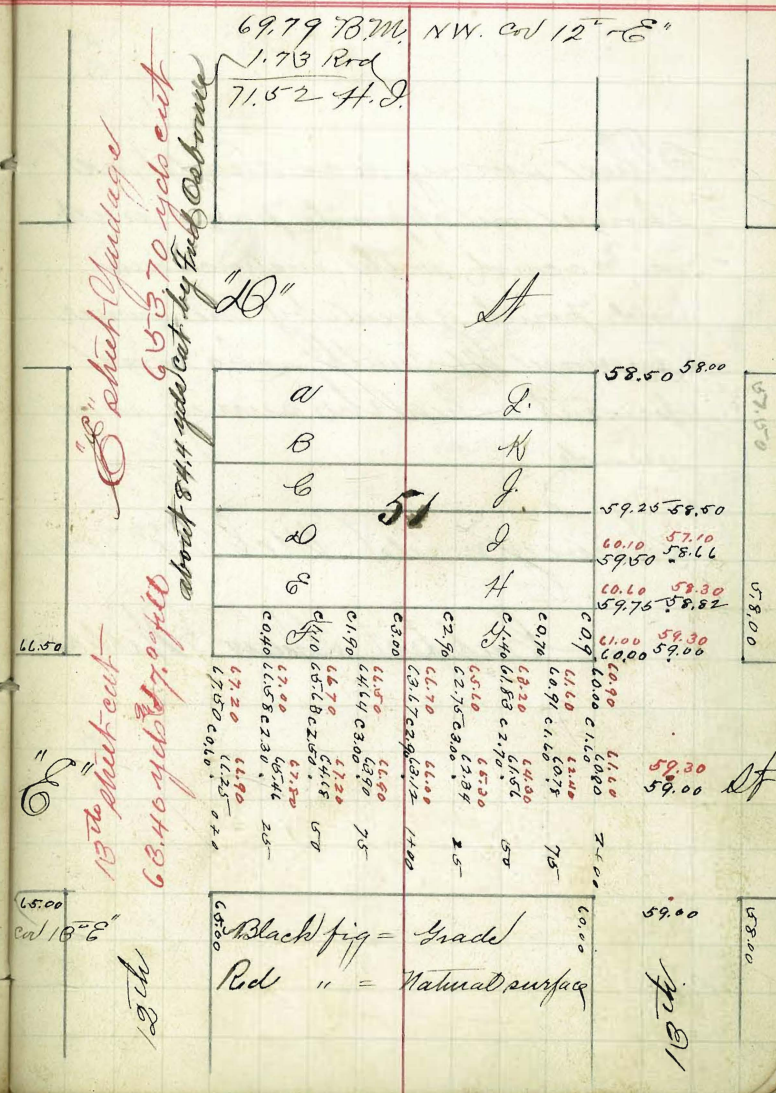 69.79 B.M. N.W. Cor 12th - "E"
1.73 Rod
71.52 H.I.
"E" street Yardage
6553.70 yds cut
about 844 yds cut by Fred Osborne
13th street cut
63.46 yds
"D" St
58.50 58.00
57.50
A L
B K
C J
51
59.25 58.50
D I
60.10 57.10
59.50 58.66
E H
60.60 58.30
59.75 58.82
58.00
F G
61.00 59.30
60.00 59.00
66.50
C 0.40 C 1.10 C 1.90 C 3.00 C 2.90 C 1.40 C 0.70 C 0.9
67.20 67.00 66.70 66.50 66.70 65.10 63.20 61.60 60.90
67.50 C 0.60 66.58 C 2.30 65.63 C 2.50 64.64 C 3.00 63.67 C 2.90 62.75 C 3.00 61.83 C 2.70 60.91 C 1.60 60.00 C 1.60
66.90 67.50 67.20 66.90 66.00 65.30 64.30 62.40 61.60
66.25 65.46 64.68 63.90 63.12 62.34 61.56 60.78 60.00
0+0 25 50 75 1+00 25 50 75 2+00
"E" St
59.30
59.00
65.00
Cor 13th "E"
65.00
60.00
59.00
58.00
Black fig = Grade
Red " = Natural surface
12th
13th